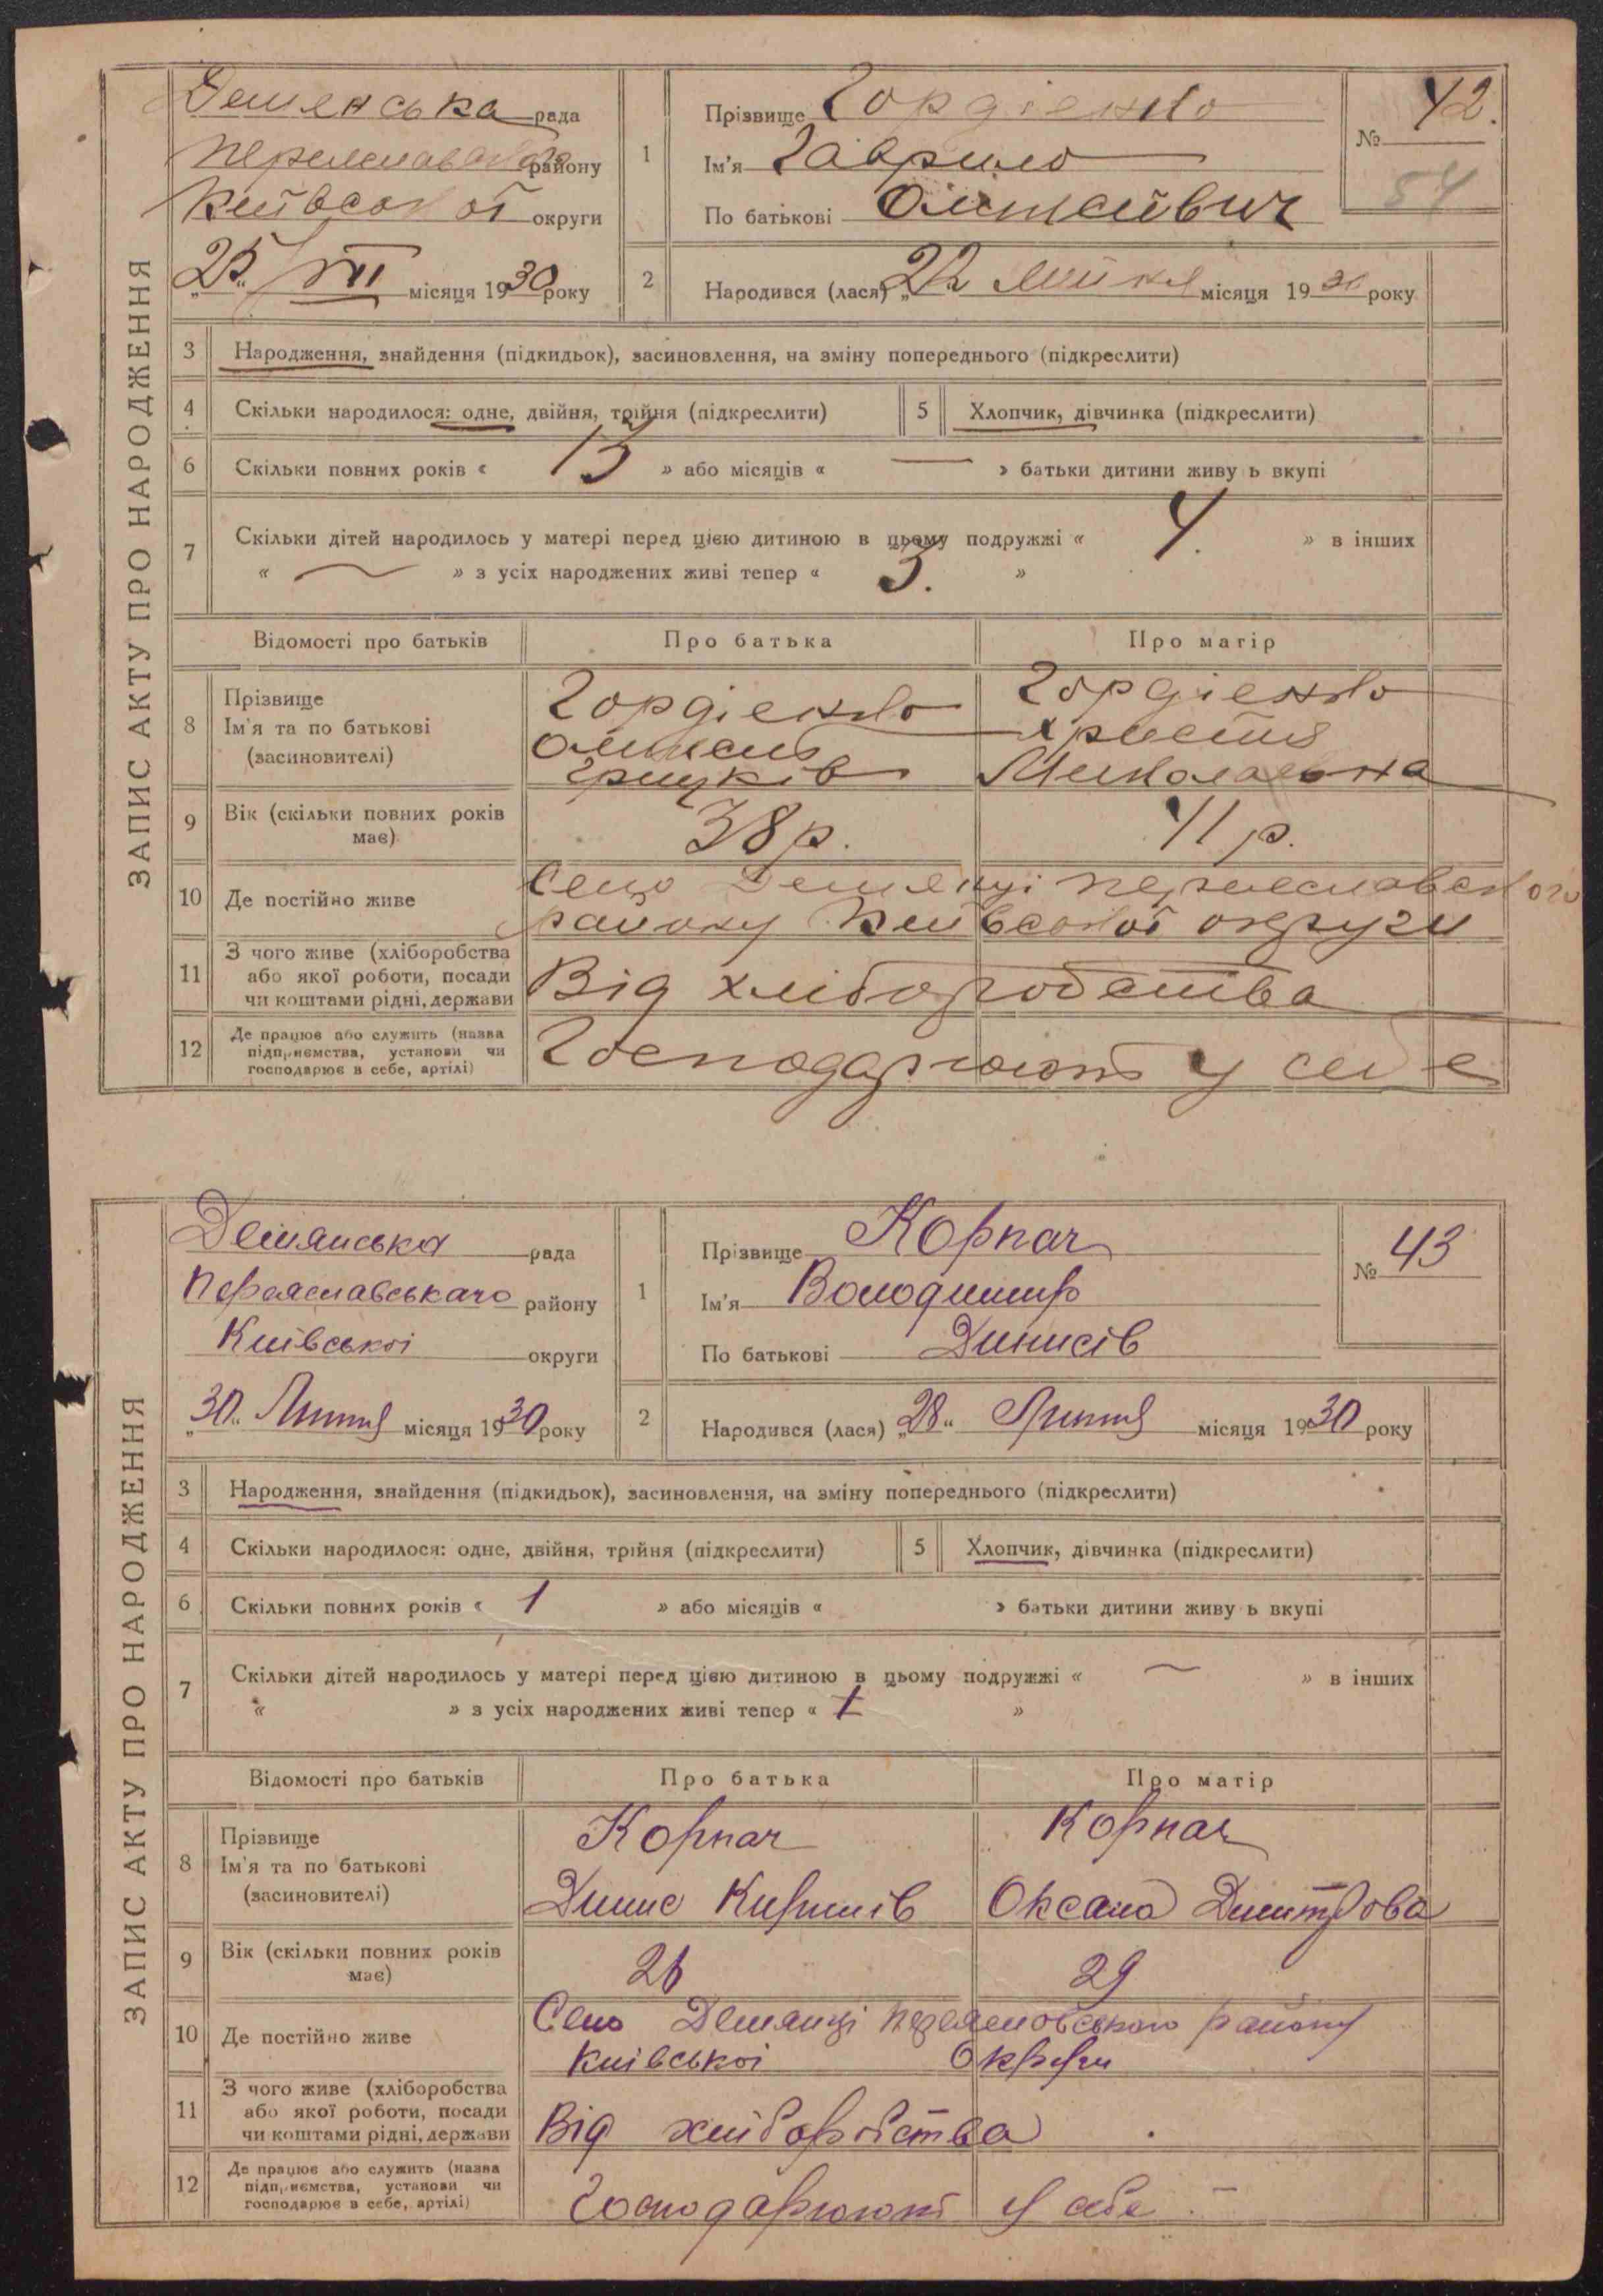 ЗАПИС АКТУ ПРО НАРОДЖЕННЯ
Демянська рада
Переяславського району
Київської округи
25/VII місяця 1930 року
1
Прізвище Гордіенко
Ім'я Гаврило
По батькові
№ 42.
54
2
Народився (лася) „22 місяця 1930 року
3 Народження, знайдення (підкидьок), засиновлення, на зміну попереднього (підкреслити)
4 Скільки народилося: одне, двійня, трійня (підкреслити) 5 Хлопчик, дівчинка (підкреслити)
6 Скільки повних років « 13 » або місяців « — » батьки дитини живу ь вкупі
7 Скільки дітей народилось у матері перед цією дитиною в цьому подружжі « 4. » в інших
« — » з усіх народжених живі тепер « 3. »
Відомості про батьків Про батька Про матір
8 Прізвище
Ім'я та по батькові
(засиновителі)
Гордіенко
Олексій
Грицків
Гордіенко
Христя
Миколаевна
9 Вік (скільки повних років має) 38 р. 41 р.
10 Де постійно живе Село Демянці Переяславського
району Київської округи
11 З чого живе (хліборобства
або якої роботи, посади
чи коштами рідні, держави
Від хліборобства
12 Де працює або служить (назва
підприємства, установи чи
господарює в себе, артілі)
Господарюють у себе
ЗАПИС АКТУ ПРО НАРОДЖЕННЯ
Демянська рада
Переяславського району
Київської округи
„30“ Липня місяця 1930 року
1
Прізвище Корпач
Ім'я Володимир
По батькові Динисів
№ 43
2
Народився (лася) „28“ Липня місяця 1930 року
3 Народження, знайдення (підкидьок), засиновлення, на зміну попереднього (підкреслити)
4 Скільки народилося: одне, двійня, трійня (підкреслити) 5 Хлопчик, дівчинка (підкреслити)
6 Скільки повних років « 1 » або місяців « » батьки дитини живу ь вкупі
7 Скільки дітей народилось у матері перед цією дитиною в цьому подружжі « — » в інших
« » з усіх народжених живі тепер « 1 »
Відомості про батьків Про батька Про матір
8 Прізвище
Ім'я та по батькові
(засиновителі)
Корпач
Динис
Корпач
Оксана Дмитрова
9 Вік (скільки повних років має) 26 29
10 Де постійно живе Село Демянці Переяславського району
Київської Округи
11 З чого живе (хліборобства
або якої роботи, посади
чи коштами рідні, держави
Від хліборобства
12 Де працює або служить (назва
підприємства, установи чи
господарює в себе, артілі)
Господарюють у себе